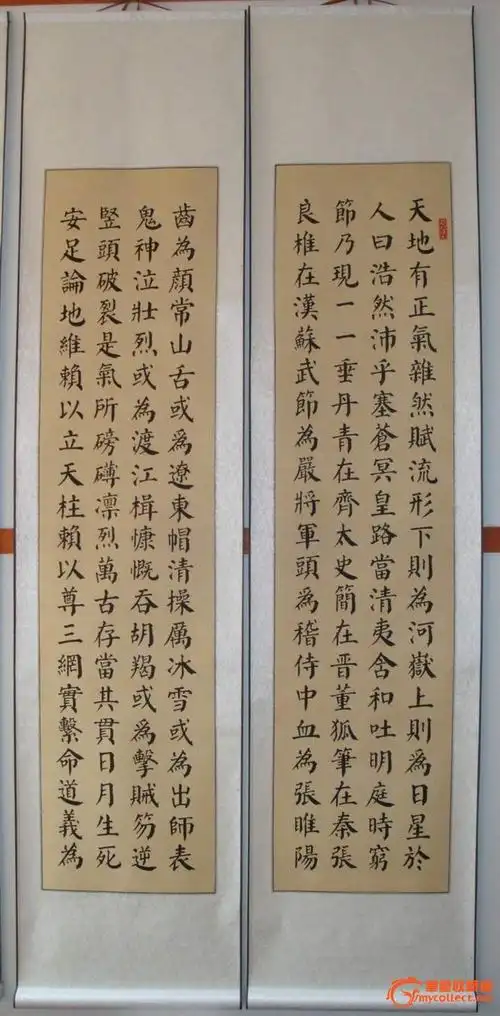 天地有正氣雜然賦流形下則為河嶽上則為日星於
人曰浩然沛乎塞蒼冥皇路當清夷含和吐明庭時窮
節乃現一一垂丹青在齊太史簡在晋董狐筆在秦張
良椎在漢蘇武節為嚴將軍頭為稽侍中血為張睢陽
齒為顏常山舌或為遼東帽清操厲冰雪或為出師表
鬼神泣壯烈或為渡江楫慷慨吞胡羯或為擊賊笏逆
豎頭破裂是氣所磅礴凛烈萬古存當其貫日月生死
安足論地維賴以立天柱賴以尊三網實繫命道義為
mycollect.net